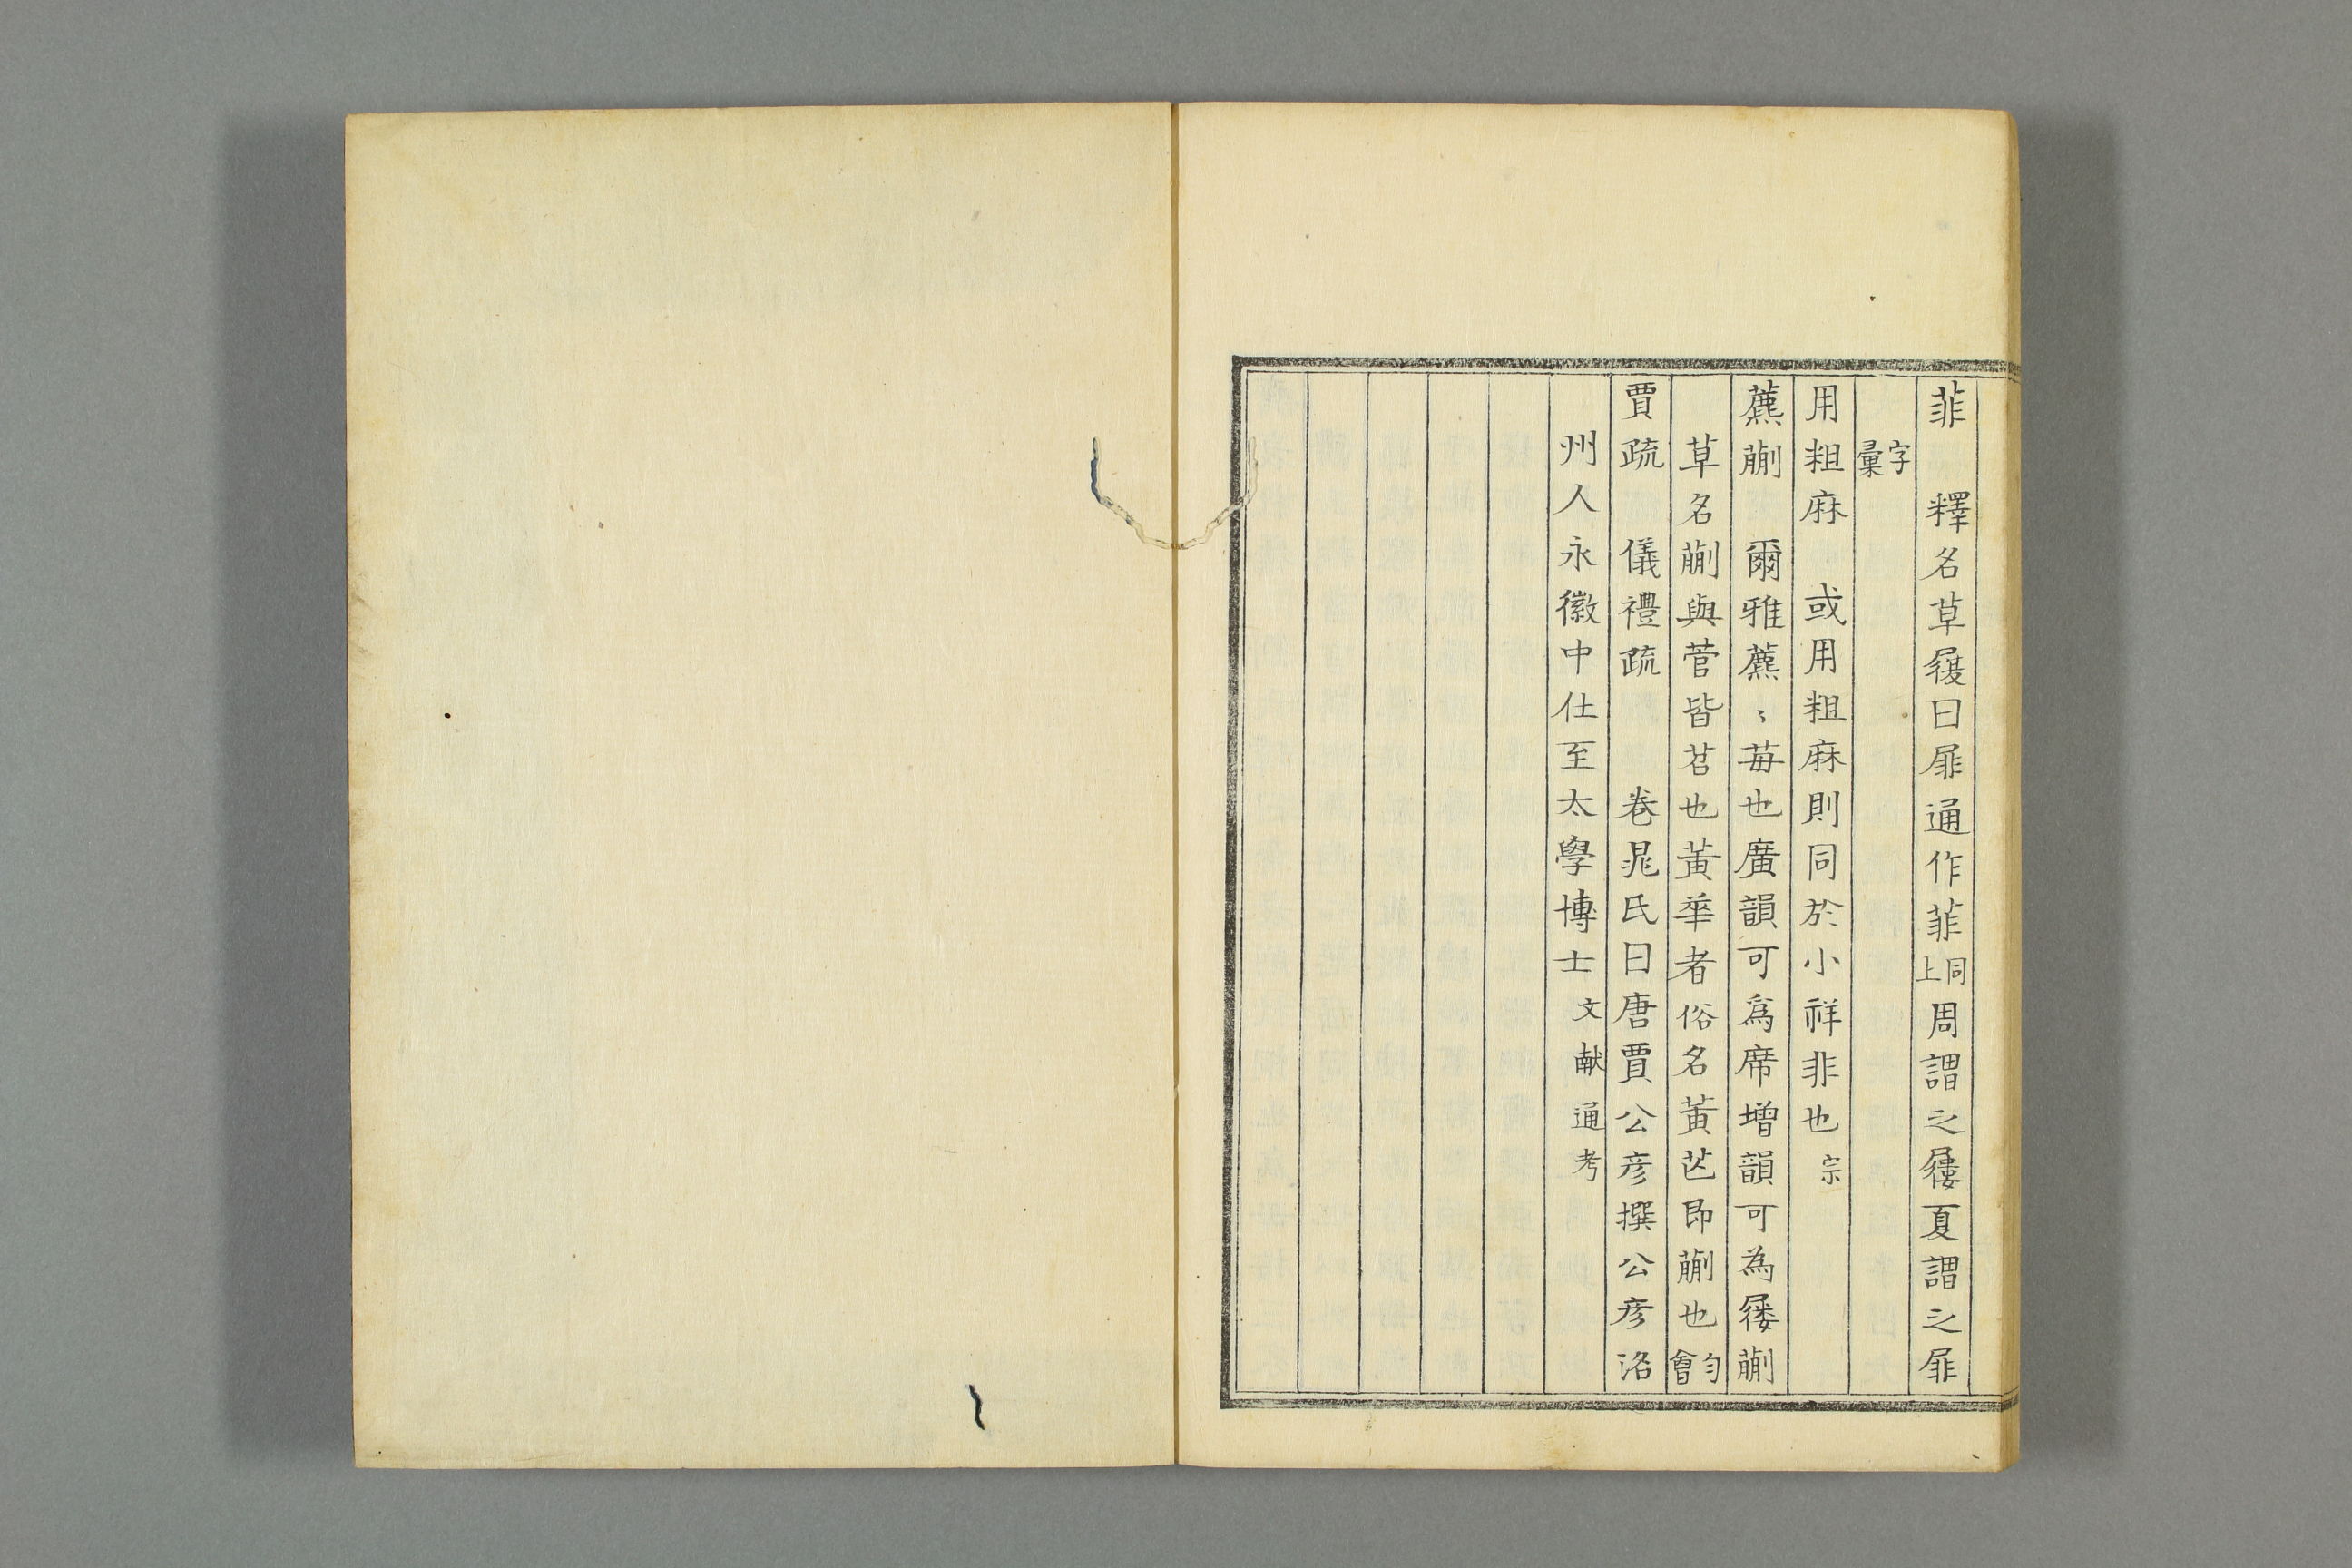 菲　釋名草屨曰屝通作菲同上周謂之屨夏謂之屝
字彙
用粗麻　或用粗麻則同於小祥非也宗
藨蒯　爾雅藨〻莓也廣韻可爲席增韻可為屨蒯
草名蒯與菅皆茗也黃華者俗名黃芒即蒯也韵會
賈疏　儀禮疏　　卷晁氏曰唐賈公彦撰公彦洺
州人永徽中仕至太學博士文献通考